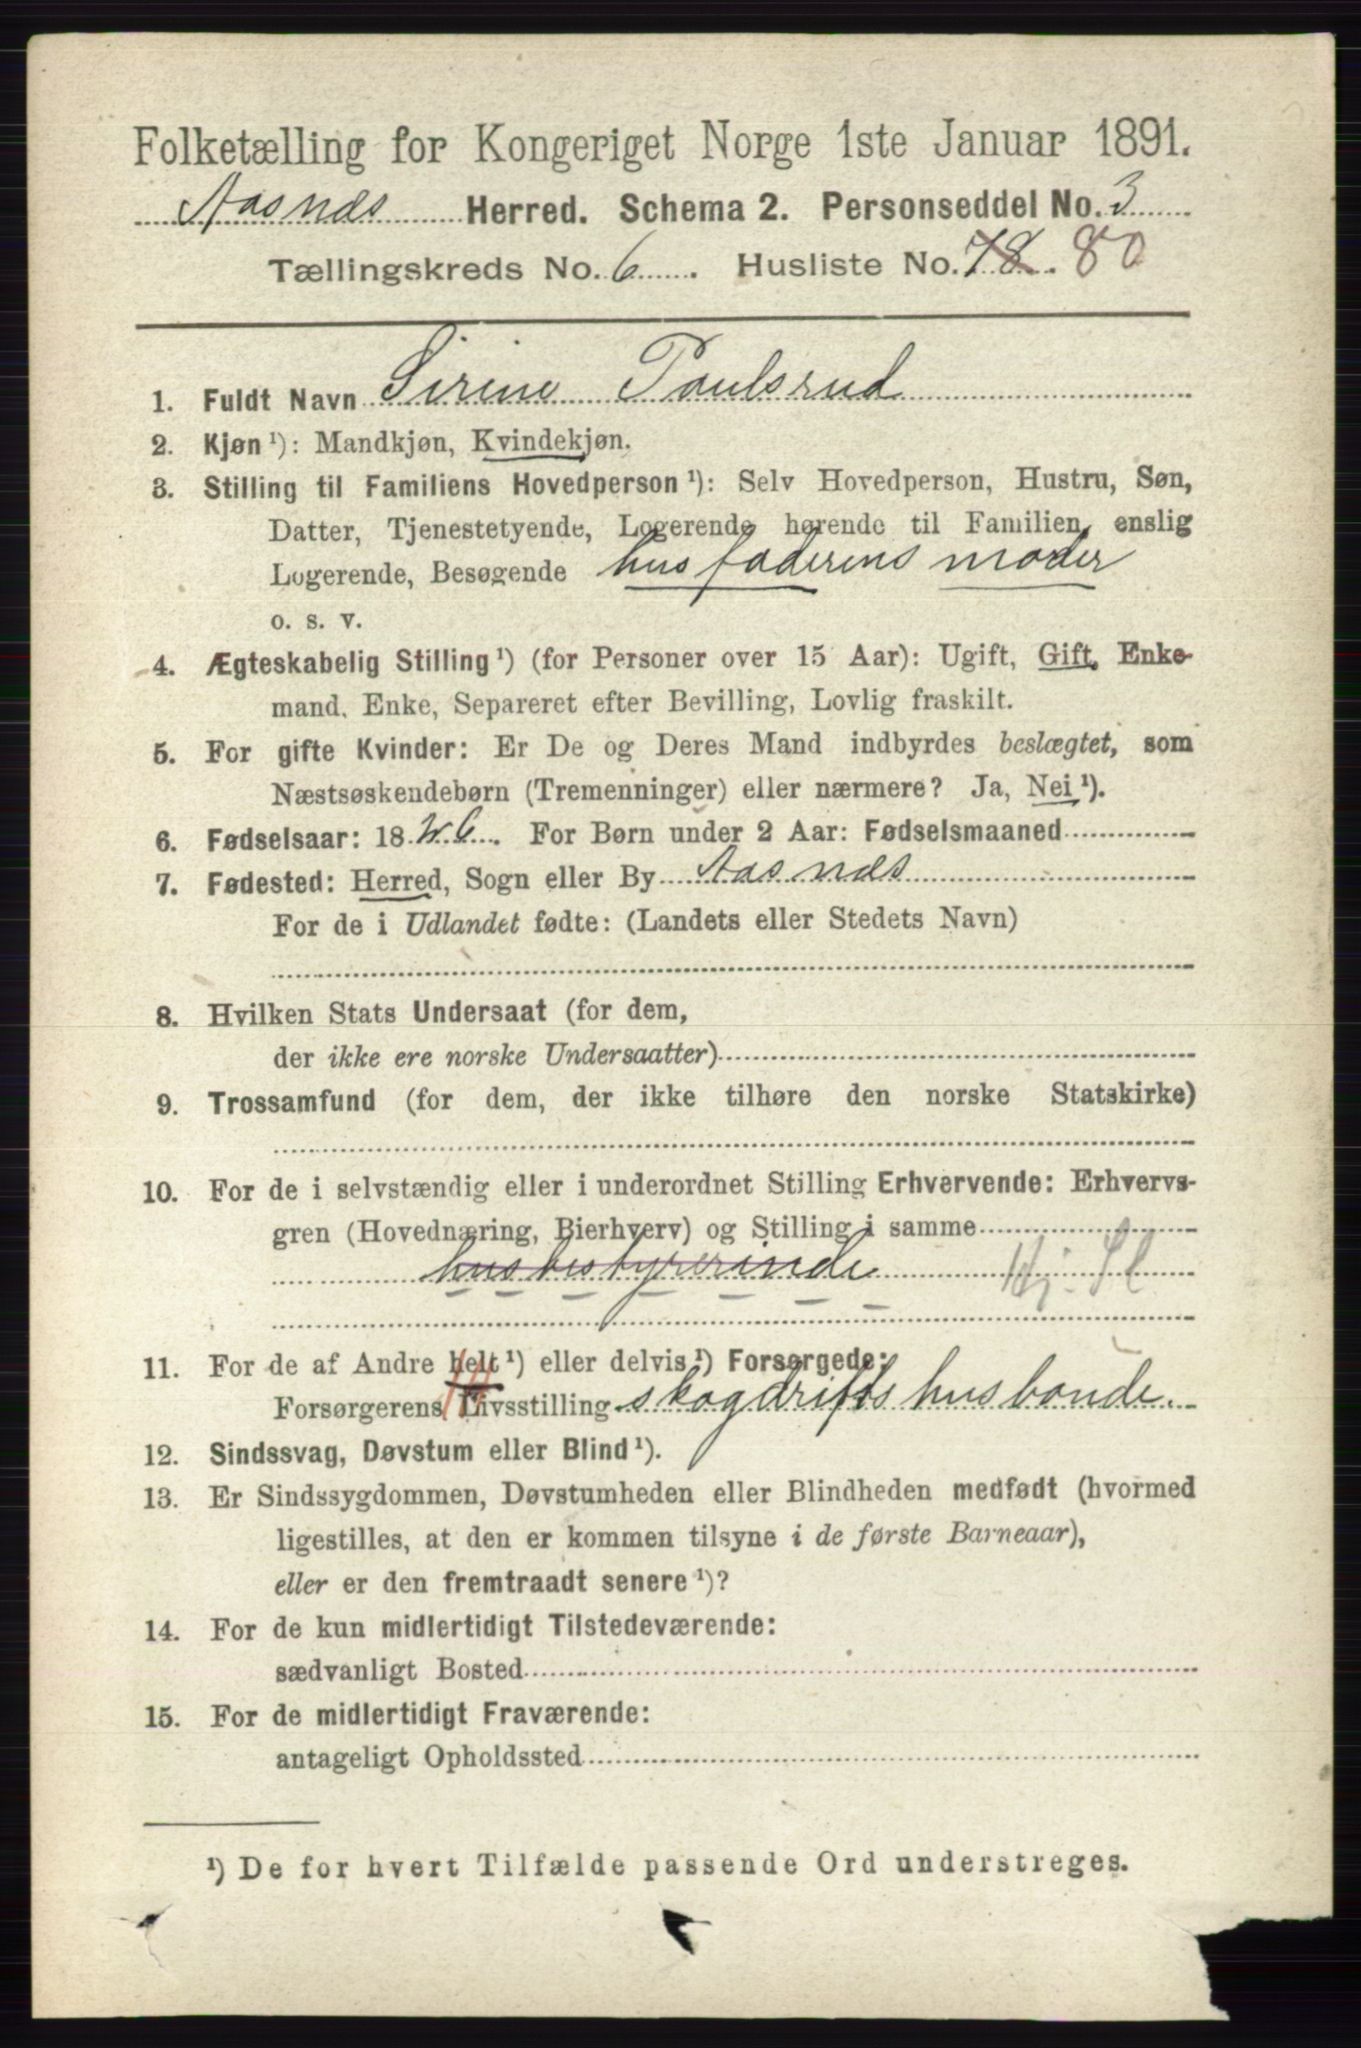 Folketælling for Kongeriget Norge 1ste Januar 1891.
Aasnæs Herred. Schema 2. Personseddel No. 3
Tællingskreds No. 6. Husliste No. 78. 80
1. Fuldt Navn Sirine Paulsrud
2. Kjøn ¹): Mandkjøn, Kvindekjøn.
3. Stilling til Familiens Hovedperson ¹): Selv Hovedperson, Hustru, Søn,
Datter, Tjenestetyende, Logerende hørende til Familien, enslig
Logerende, Besøgende husfaderens moder
o. s. v.
4. Ægteskabelig Stilling ¹) (for Personer over 15 Aar): Ugift, Gift, Enke-
mand, Enke, Separeret efter Bevilling, Lovlig fraskilt.
5. For gifte Kvinder: Er De og Deres Mand indbyrdes beslægtet, som
Næstsøskendebørn (Tremenninger) eller nærmere? Ja, Nei ¹).
6. Fødselsaar: 1826. For Børn under 2 Aar: Fødselsmaaned
7. Fødested: Herred, Sogn eller By Aasnæs
For de i Udlandet fødte: (Landets eller Stedets Navn)
8. Hvilken Stats Undersaat (for dem,
der ikke ere norske Undersaatter)
9. Trossamfund (for dem, der ikke tilhøre den norske Statskirke)
10. For de i selvstændig eller i underordnet Stilling Erhvervende: Erhvervs-
gren (Hovednæring, Bierhverv) og Stilling i samme
husbestyrerinde
11. For de af Andre helt ¹) eller delvis ¹) Forsørgede:
Forsørgerens Livsstilling skogdrifts husbonde.
12. Sindssvag, Døvstum eller Blind ¹).
13. Er Sindssygdommen, Døvstumheden eller Blindheden medfødt (hvormed
ligestilles, at den er kommen tilsyne i de første Barneaar),
eller er den fremtraadt senere ¹)?
14. For de kun midlertidigt Tilstedeværende:
sædvanligt Bosted
15. For de midlertidigt Fraværende:
antageligt Opholdssted
¹) De for hvert Tilfælde passende Ord understreges.